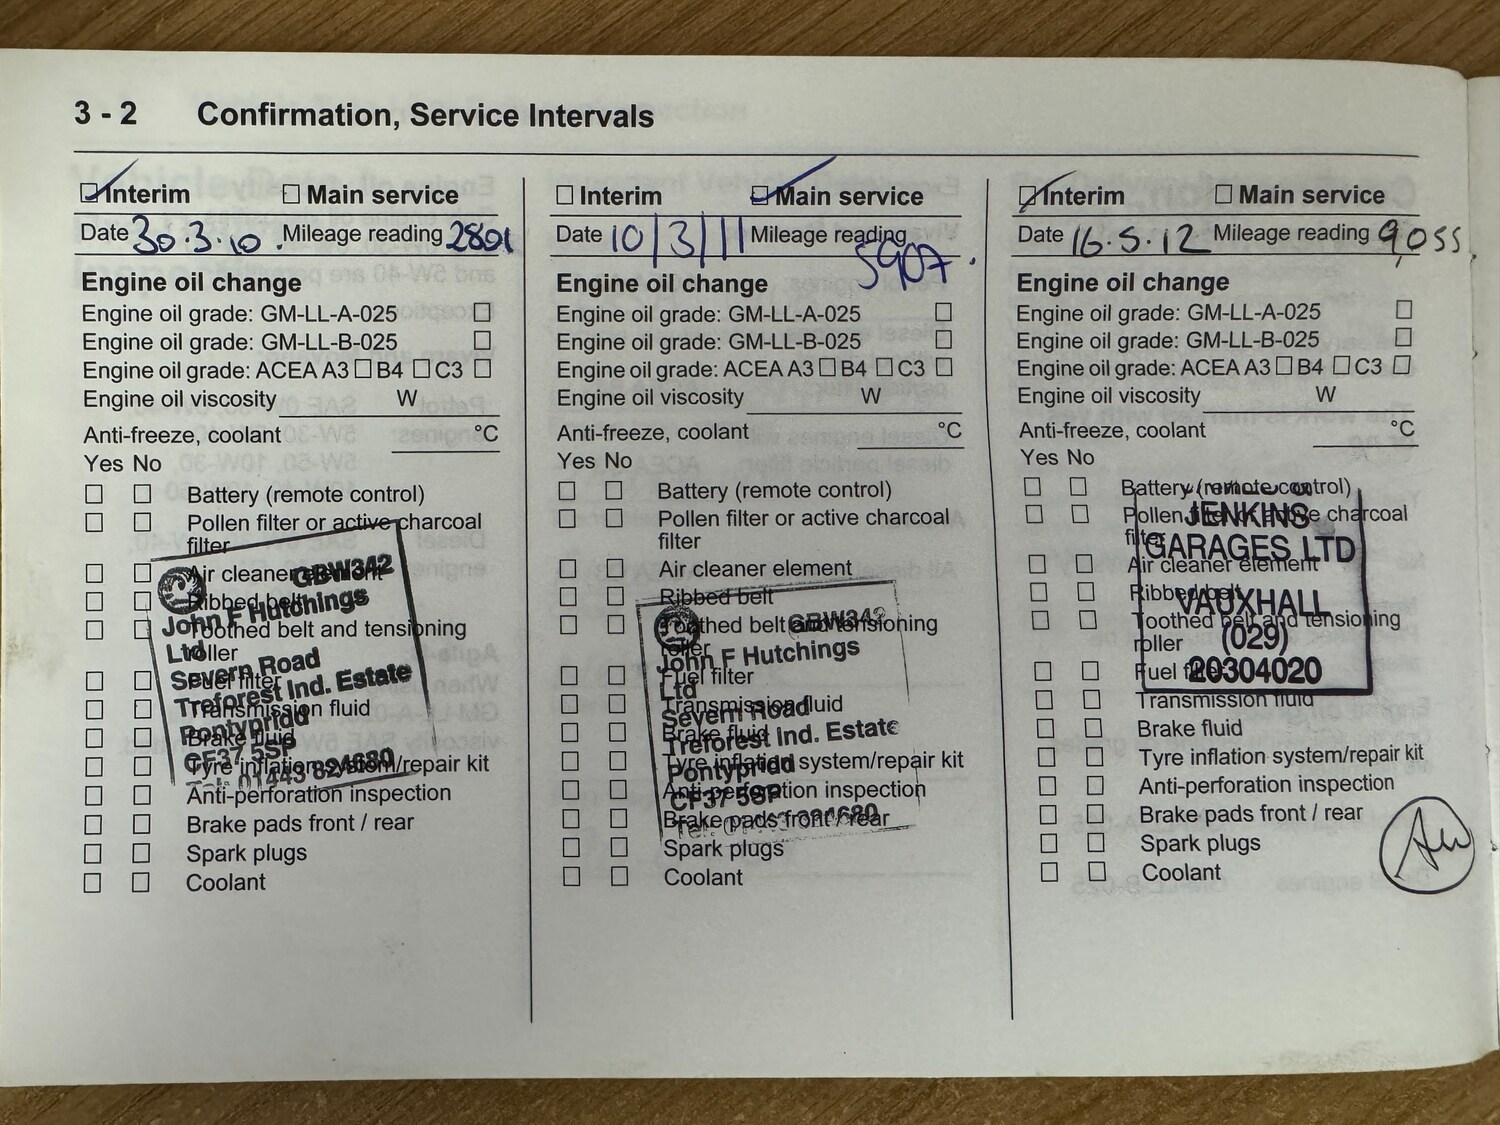 3 - 2 Confirmation, Service Intervals
Interim Main service
Date 30.3.10. Mileage reading 2801
Engine oil change
Engine oil grade: GM-LL-A-025
Engine oil grade: GM-LL-B-025
Engine oil grade: ACEA A3 B4 C3
Engine oil viscosity W
Anti-freeze, coolant °C
Yes No
Battery (remote control)
Pollen filter or active charcoal
filter
Air cleaner element
Ribbed belt
Toothed belt and tensioning
roller
Fuel filter
Transmission fluid
Brake fluid
Tyre inflation system/repair kit
Anti-perforation inspection
Brake pads front / rear
Spark plugs
Coolant
GBW342
John F Hutchings
Ltd
Severn Road
Treforest Ind. Estate
Pontypridd
CF37 5SP
Tel: 01443 824680
Interim Main service
Date 10/3/11 Mileage reading
5907.
Engine oil change
Engine oil grade: GM-LL-A-025
Engine oil grade: GM-LL-B-025
Engine oil grade: ACEA A3 B4 C3
Engine oil viscosity W
Anti-freeze, coolant °C
Yes No
Battery (remote control)
Pollen filter or active charcoal
filter
Air cleaner element
Ribbed belt
Toothed belt and tensioning
roller
Fuel filter
Transmission fluid
Brake fluid
Tyre inflation system/repair kit
Anti-perforation inspection
Brake pads front / rear
Spark plugs
Coolant
GBW342
John F Hutchings
Ltd
Severn Road
Treforest Ind. Estate
Pontypridd
CF37 5SP
Tel: 01443 824680
Interim Main service
Date 16.5.12 Mileage reading 9,055
Engine oil change
Engine oil grade: GM-LL-A-025
Engine oil grade: GM-LL-B-025
Engine oil grade: ACEA A3 B4 C3
Engine oil viscosity W
Anti-freeze, coolant °C
Yes No
Battery (remote control)
Pollen filter or active charcoal
filter
Air cleaner element
Ribbed belt
Toothed belt and tensioning
roller
Fuel filter
Transmission fluid
Brake fluid
Tyre inflation system/repair kit
Anti-perforation inspection
Brake pads front / rear
Spark plugs
Coolant
JENKINS
GARAGES LTD
VAUXHALL
(029)
20304020